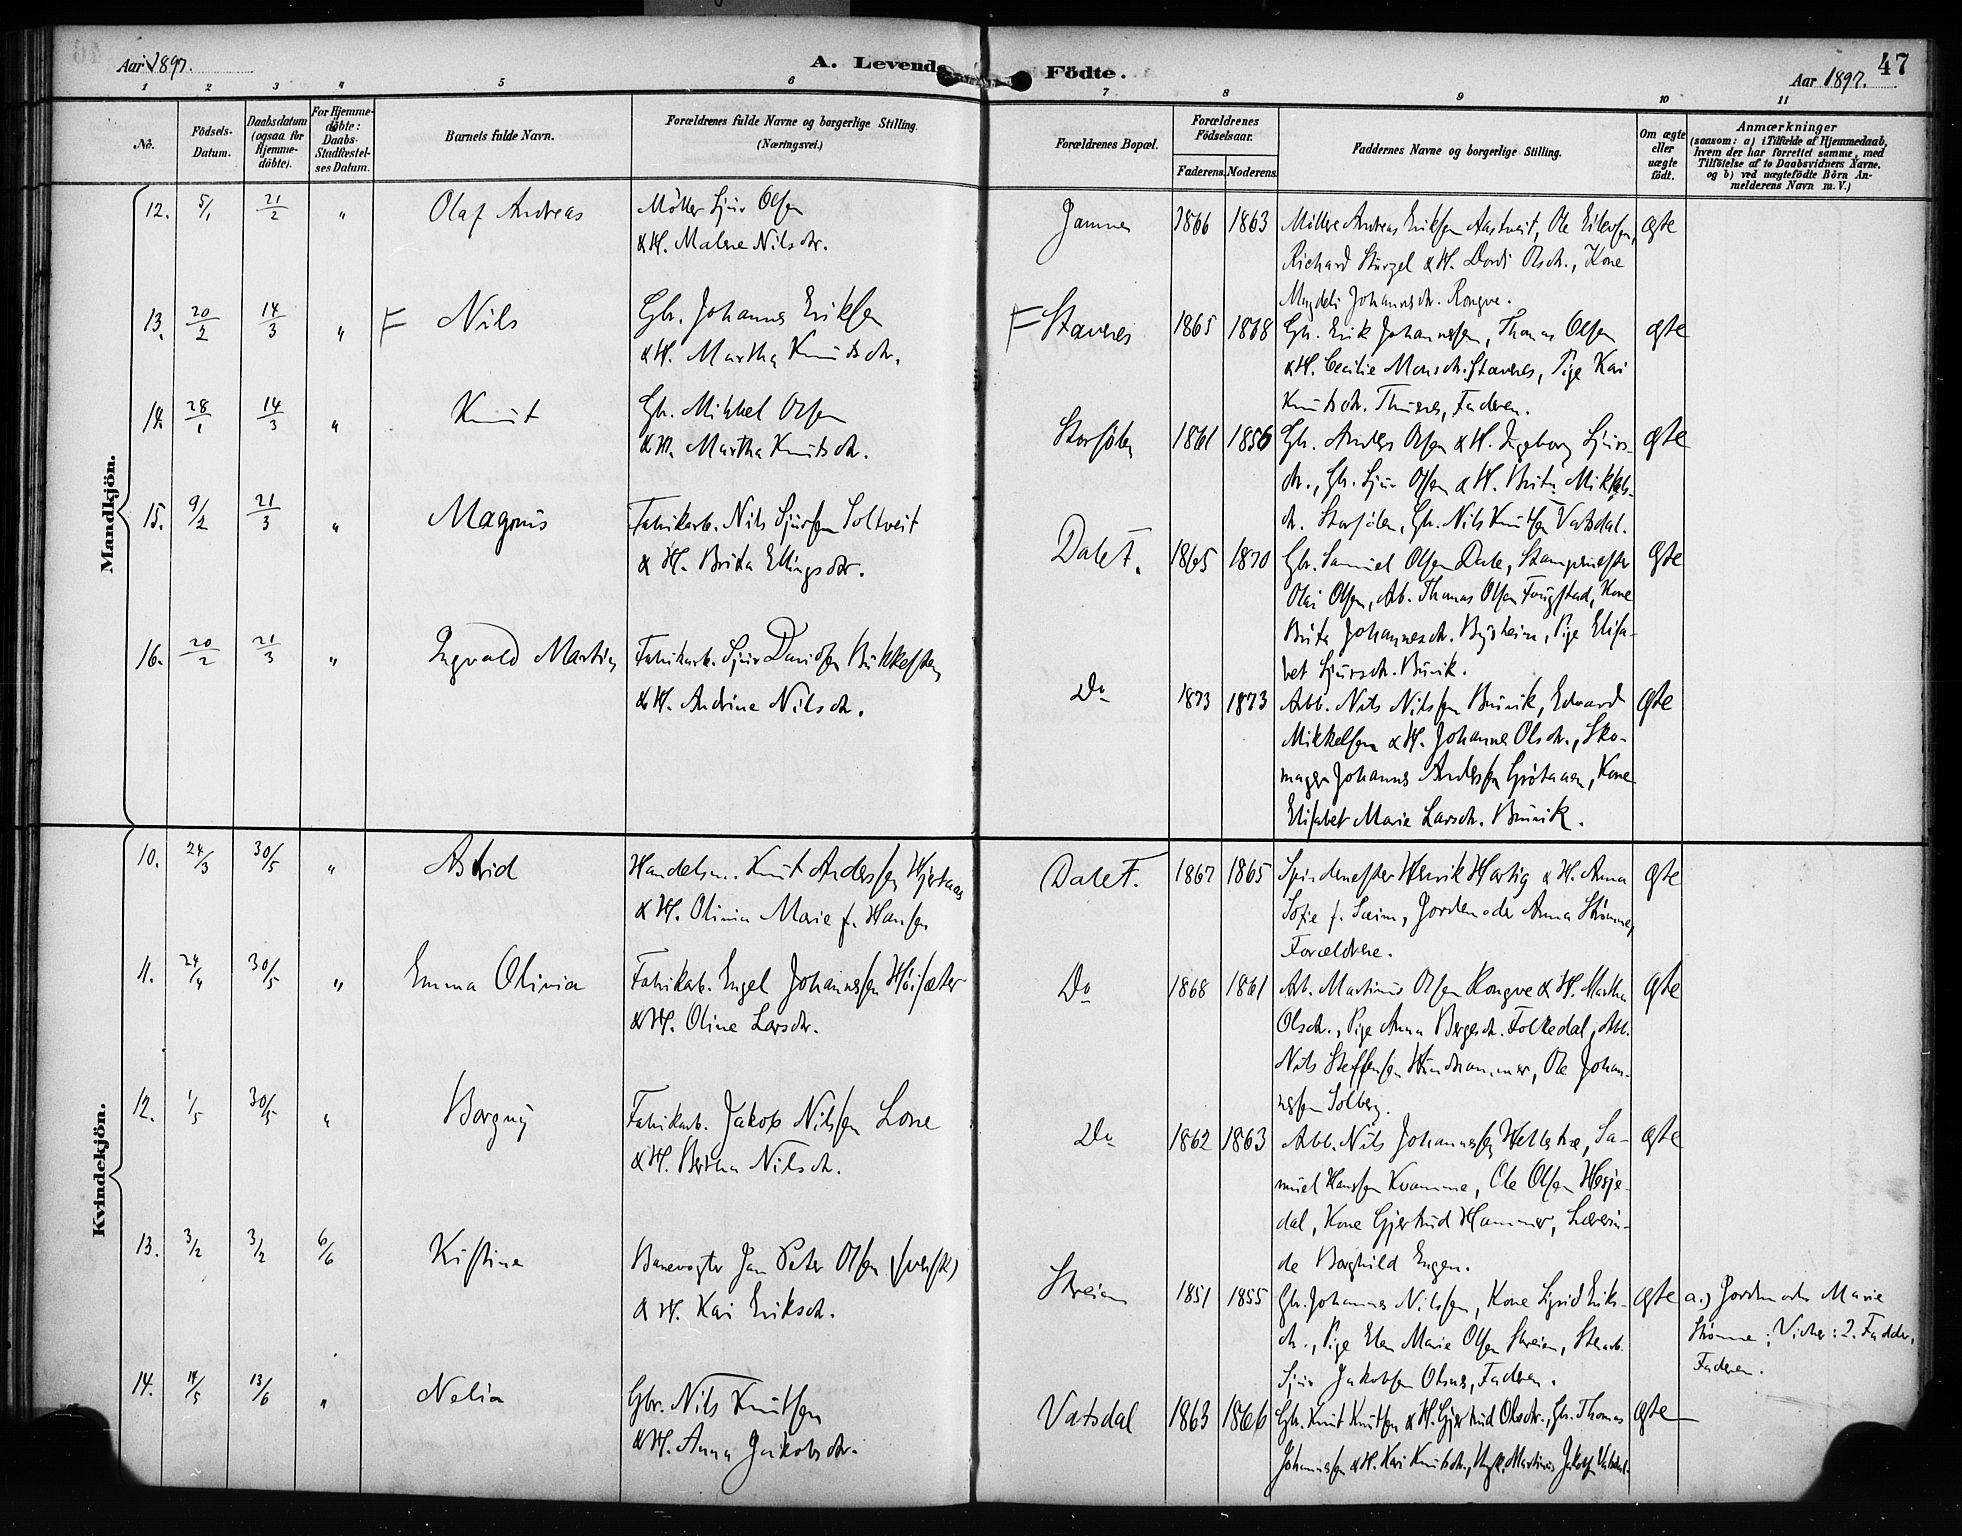 Aar 1897.
A. Levende Födte.
Aar 1897.
47
1 2 3 4 5 6 7 8 9 10 11
No.
Födsels-Datum.
Daabsdatum (ogsaa for Hjemme-döbte).
For Hjemme-döbte: Daabs-Stadfæstel-ses Datum.
Barnets fulde Navn.
Forældrenes fulde Navne og borgerlige Stilling.
(Næringsvei.)
Forældrenes Bopæl.
Forældrenes Födselsaar.
Faderens. Moderens.
Faddernes Navne og borgerlige Stilling.
Om ægte eller uægte födt.
Anmærkninger
(saasom: a) i Tilfælde af Hjemmedaab,
hvem der har forrettet samme, med
Tilföielse af to Daabsvidners Navne,
og b) ved uægtefödte Börn An-
melderens Navn m. V.)
Mandkjön.
12. 5/1 21/2 " Olaf Andreas
Möller Sjur Olsen
& H. Malene Nilsdtr.
Jamnes 1866 1863
Möllere Andreas Eriksen Aastveit, Ole Eilevsen,
Richard Stürzel & H. Dordi Olsdtr., Kone
Magdeli Johannesdtr. Rongve.
ægte
13. 20/2 14/3 " F Nils
Gbr. Johannes Eriksen
& H. Martha Knutsdtr.
F Stavenes 1865 1868
Gbr. Erik Johannessen, Thomas Olsen
& H. Cecilie Monsdtr. Stavenes, Pige Kari
Knutsdtr. Thunes, Faderen.
ægte
14. 28/1 14/3 " Knut
Gbr. Mikkel Olsen
& H. Martha Knutsdtr.
Storsölen 1861 1856
Gbr. Anders Olsen & H. Ingeborg Sjurs-
dtr., Gbr. Sjur Olsen & H. Brita Mikkels-
dtr. Storsölen, Gbr. Nils Knutsen Vatsdal.
ægte
15. 9/2 21/3 " Magnus
Fabrikarb. Nils Sjursen Soltveit
& H. Brita Ellingsdtr.
Dale F. 1865 1870
Gbr. Samuel Olsen Dale, Stampemester
Olai Olsen, Arb. Thomas Olsen Fougstad, Kone
Brita Johannesdtr. Bysheim, Pige Elisa-
bet Sjursdtr. Bruvik.
ægte
16. 20/2 21/3 " Ingvald Martin
Fabrikarb. Sjur Davidsen Bukkesten
& H. Andrine Nilsdtr.
Do 1873 1873
Arbb. Nils Nilssen Bruvik, Edvard
Mikkelsen & H. Johanna Olsdtr., Sko-
mager Johannes Anderssen Grötanen, Kone
Elisabet Marie Larsdtr. Bruvik.
ægte
Kvindekjön.
10. 24/3 30/5 " Astrid
Handelsm. Knut Anderssen Hjertaas
& H. Olivia Marie f. Hansen
Dale F. 1867 1865
Spindemester Henrik Hartig & H. Anna
Sofie f. Sæim, Jordemoder Anna Strömme,
Forældrene.
ægte
11. 24/4 30/5 " Emma Olivia
Fabrikarb. Engel Johannessen Höisæter
& H. Oline Larsdtr.
Do 1868 1861
Arb. Martinus Olsen Rongve & H. Martha
Olsdtr., Pige Anna Bergesdtr. Folkedal, Arbb.
Nils Steffensen Hundhammer, Ole Johan-
nessen Solberg.
ægte
12. 1/5 30/5 " Borgny
Fabrikarb. Jakob Nilssen Lone
& H. Bertha Nilsdtr.
Do 1862 1863
Arbb. Nils Johannessen Helletræ, Sa-
muel Hanssen Kvamme, Ole Olsen Hesje-
dal, Kone Gjertrud Hammer, Lærerin-
de Borghild Engen.
ægte
13. 3/2 3/2 6/6 Kristine
Banevogter Jan Peter Olsen (svensk)
& H. Kari Eriksdtr.
Skreien 1851 1855
Gbr. Johannes Nilssen, Kone Sigrid Eriks-
dtr., Pige Elen Marie Olsen Skreien, Stenarb.
Sjur Jakobsen Olsnes, Faderen.
ægte
a.) Jordemoder Marie
Strömme; Vidner: 2. Fadder,
Faderen.
14. 14/5 13/6 " Nelia
Gbr. Nils Knutsen
& H. Anna Jakobsdtr.
Vatsdal 1863 1866
Gbr. Knut Knutsen & H. Gjertrud Olsdtr., Gbr. Thomas
Johannessen & H. Kari Knutsdtr., Ungk. Martinus Jakobsen Vatsdal.
ægte